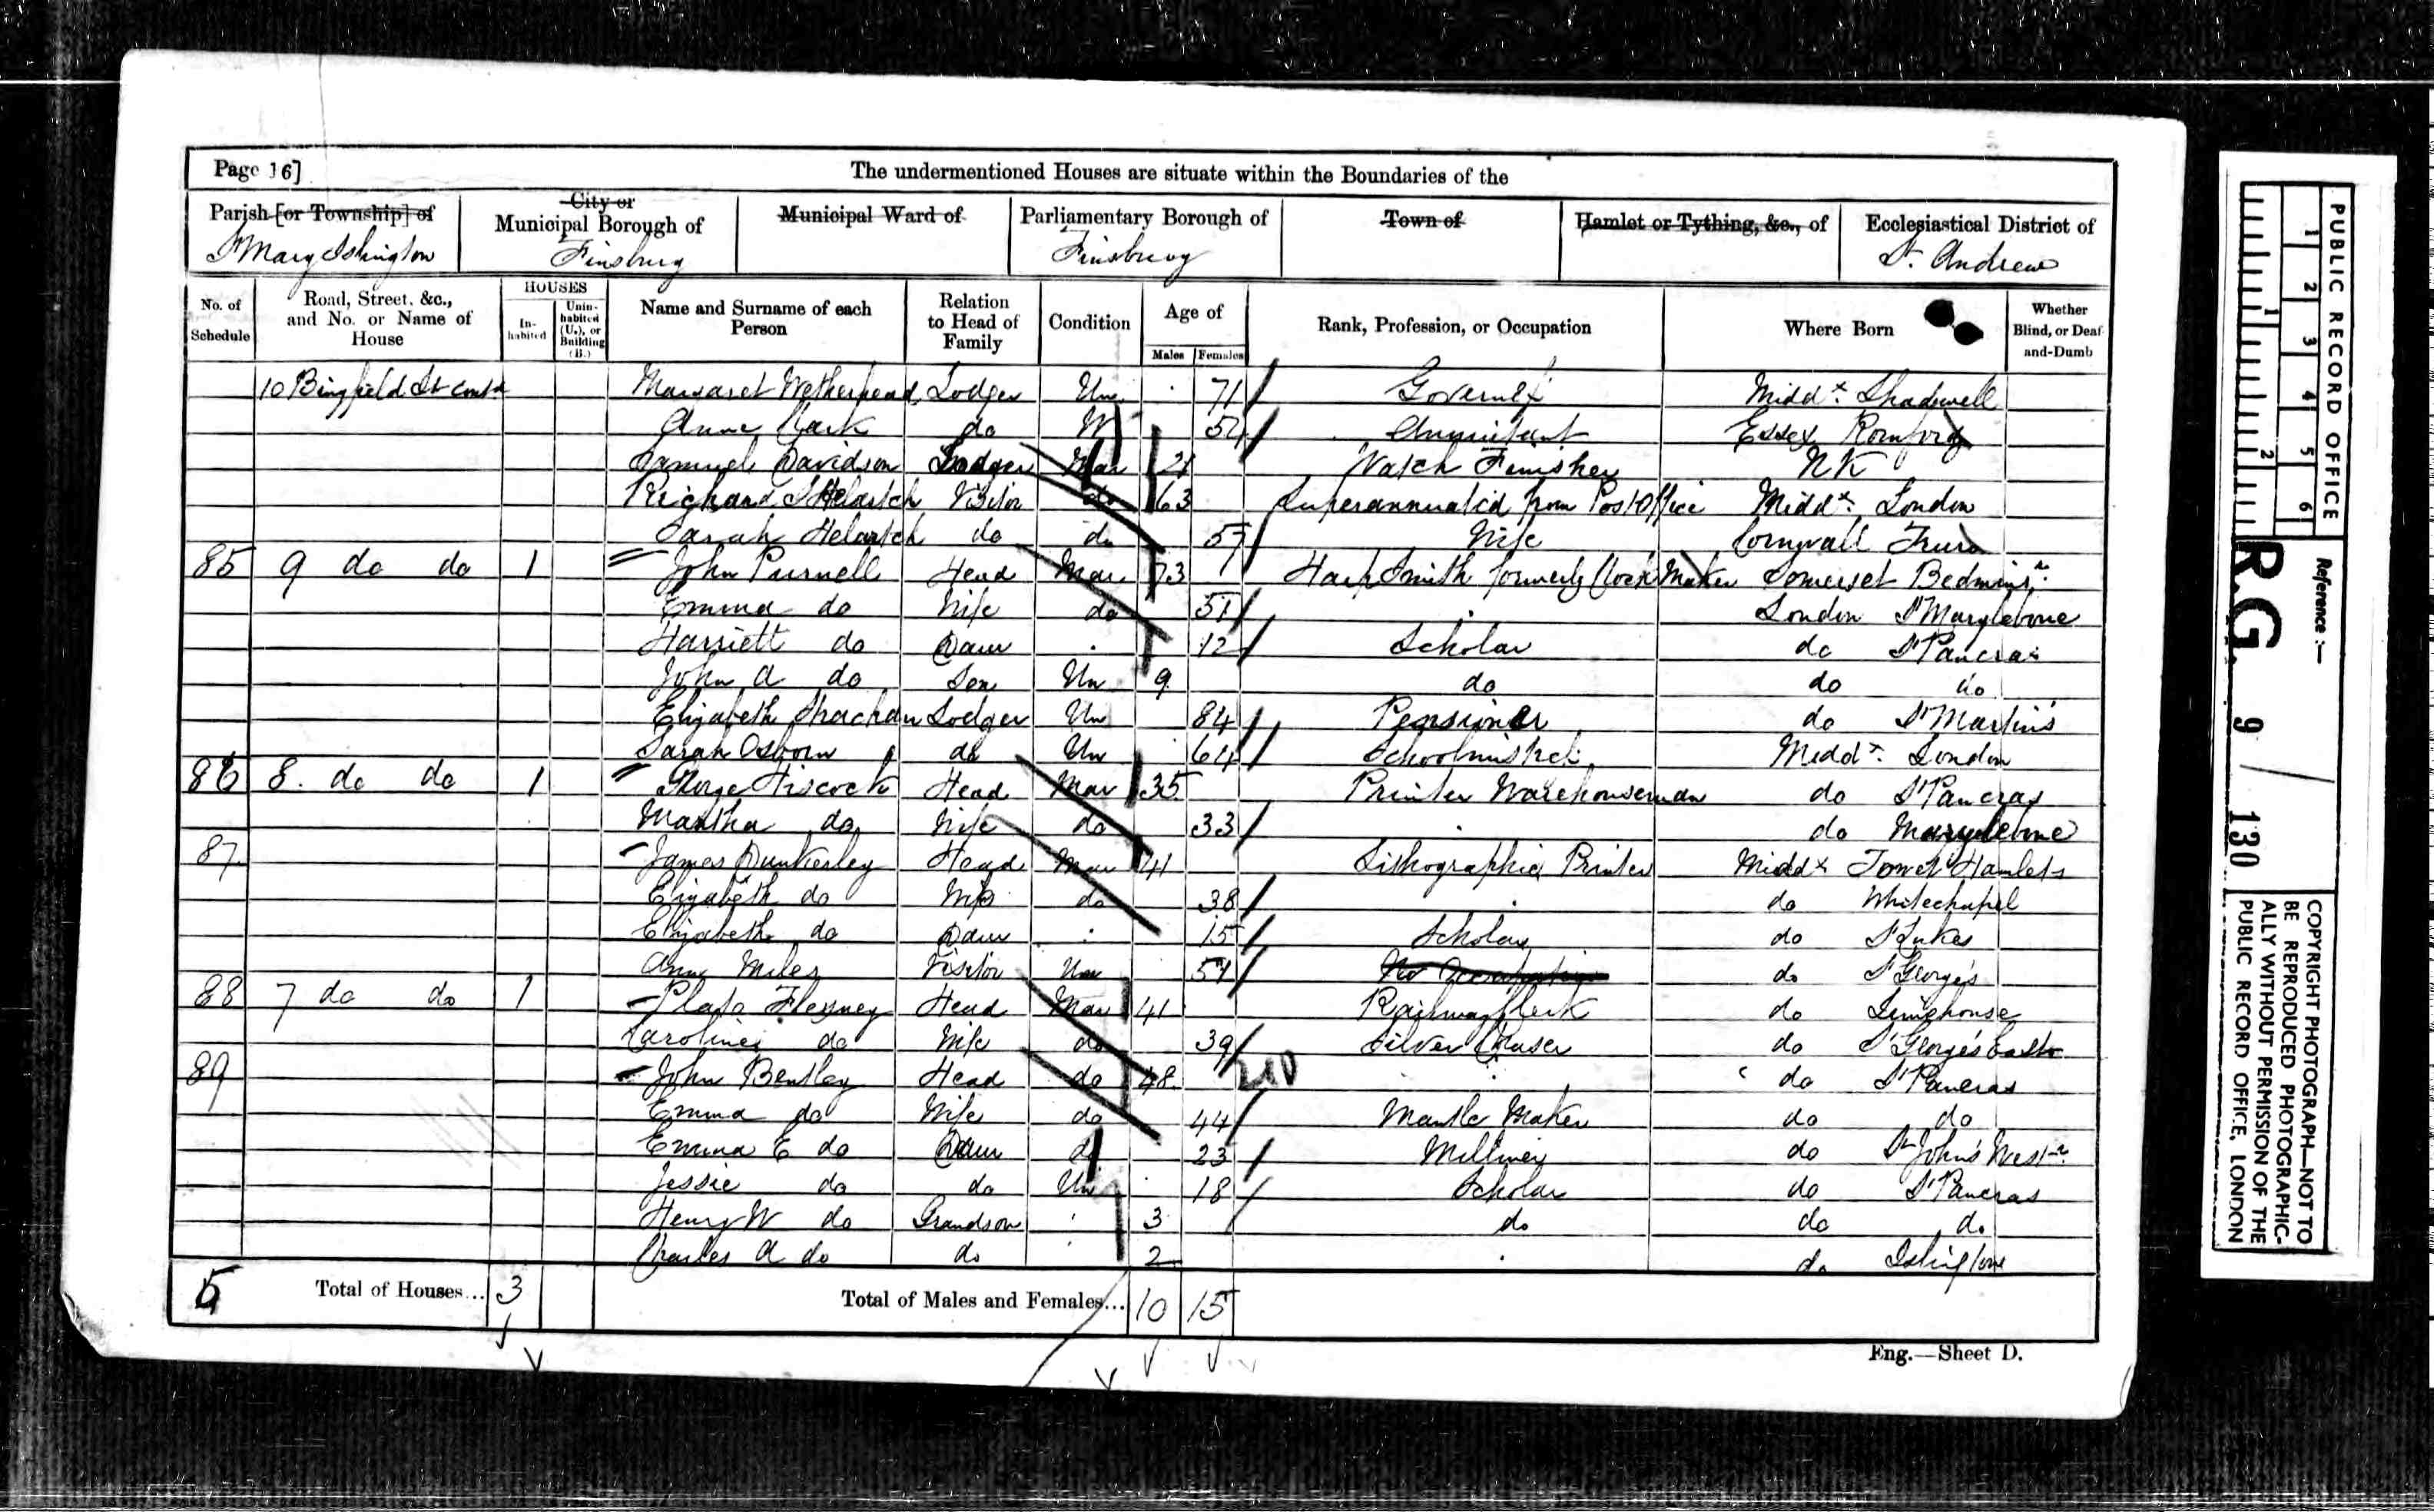 Page 16]
The undermentioned Houses are situate within the Boundaries of the
Parish [or Township] of
St Mary Islington
City or Municipal Borough of
Finsbury
Municipal Ward of
Parliamentary Borough of
Finsbury
Town of
Hamlet or Tything, &c., of
Ecclesiastical District of
St. Andrew
No. of Schedule
Road, Street, &c., and No. or Name of House
HOUSES
In-habited
Unin-habited (U.), or Building (B.)
Name and Surname of each Person
Relation to Head of Family
Condition
Age of
Males
Females
Rank, Profession, or Occupation
Where Born
Whether Blind, or Deaf-and-Dumb
10 Bingfield St contd Margaret Wetherhead Lodger Un 71 Midd x Shadwell
Anne Clark do W 54 Annuitant Essex Romford
Samuel Davidson Lodger Mar 21 Watch Finisher NK
Visitor do 63 Superannuated from Post Office Midd x London
Sarah do do 57 Wife Cornwall Truro
85 9 do do 1 John Purnell Head Mar 73 Smith formerly Clock Maker Somerset
Emma do Wife do 51 London St Marylebone
Harriett do Daur 12 Scholar do St Pancras
John A do Son Un 9 do do do
Elizabeth Lodger Un 84 Pensioner do St Martins
Sarah Osborn do Un 64 Midd x London
86 8 do do 1 George Hiscock Head Mar 35 Printer Warehouseman do St Pancras
Martha do Wife do 33 do Marylebone
87 James Dunkerley Head Mar 41 Lithographic Printer Midd x Tower Hamlets
Elizabeth do Wife do 38 do Whitechapel
Elizabeth do Daur 15 Scholar do St Lukes
Ann Miles Visitor Un do St George's
88 7 do do 1 Head Mar 41 Railway Clerk do Limehouse
Caroline do Wife do 39 Silver Chaser do St George's East
89 John Bentley Head do 48 do St Pancras
210
Emma do Wife do 44 Mantle Maker do do
Emma E do Daur do 23 Milliner do St John's
Jessie do do Un 18 Scholar do St Pancras
Henry W do Grandson 3 do do do
Charles A do do 2 do Islington
5 Total of Houses... 3 Total of Males and Females... 10 15
Eng.—Sheet D.
PUBLIC RECORD OFFICE
1 2 3 4 5 6
1 2
Reference :—
R.G. 9 / 130
COPYRIGHT PHOTOGRAPH—NOT TO BE REPRODUCED PHOTOGRAPHIC-
ALLY WITHOUT PERMISSION OF THE
PUBLIC RECORD OFFICE, LONDON